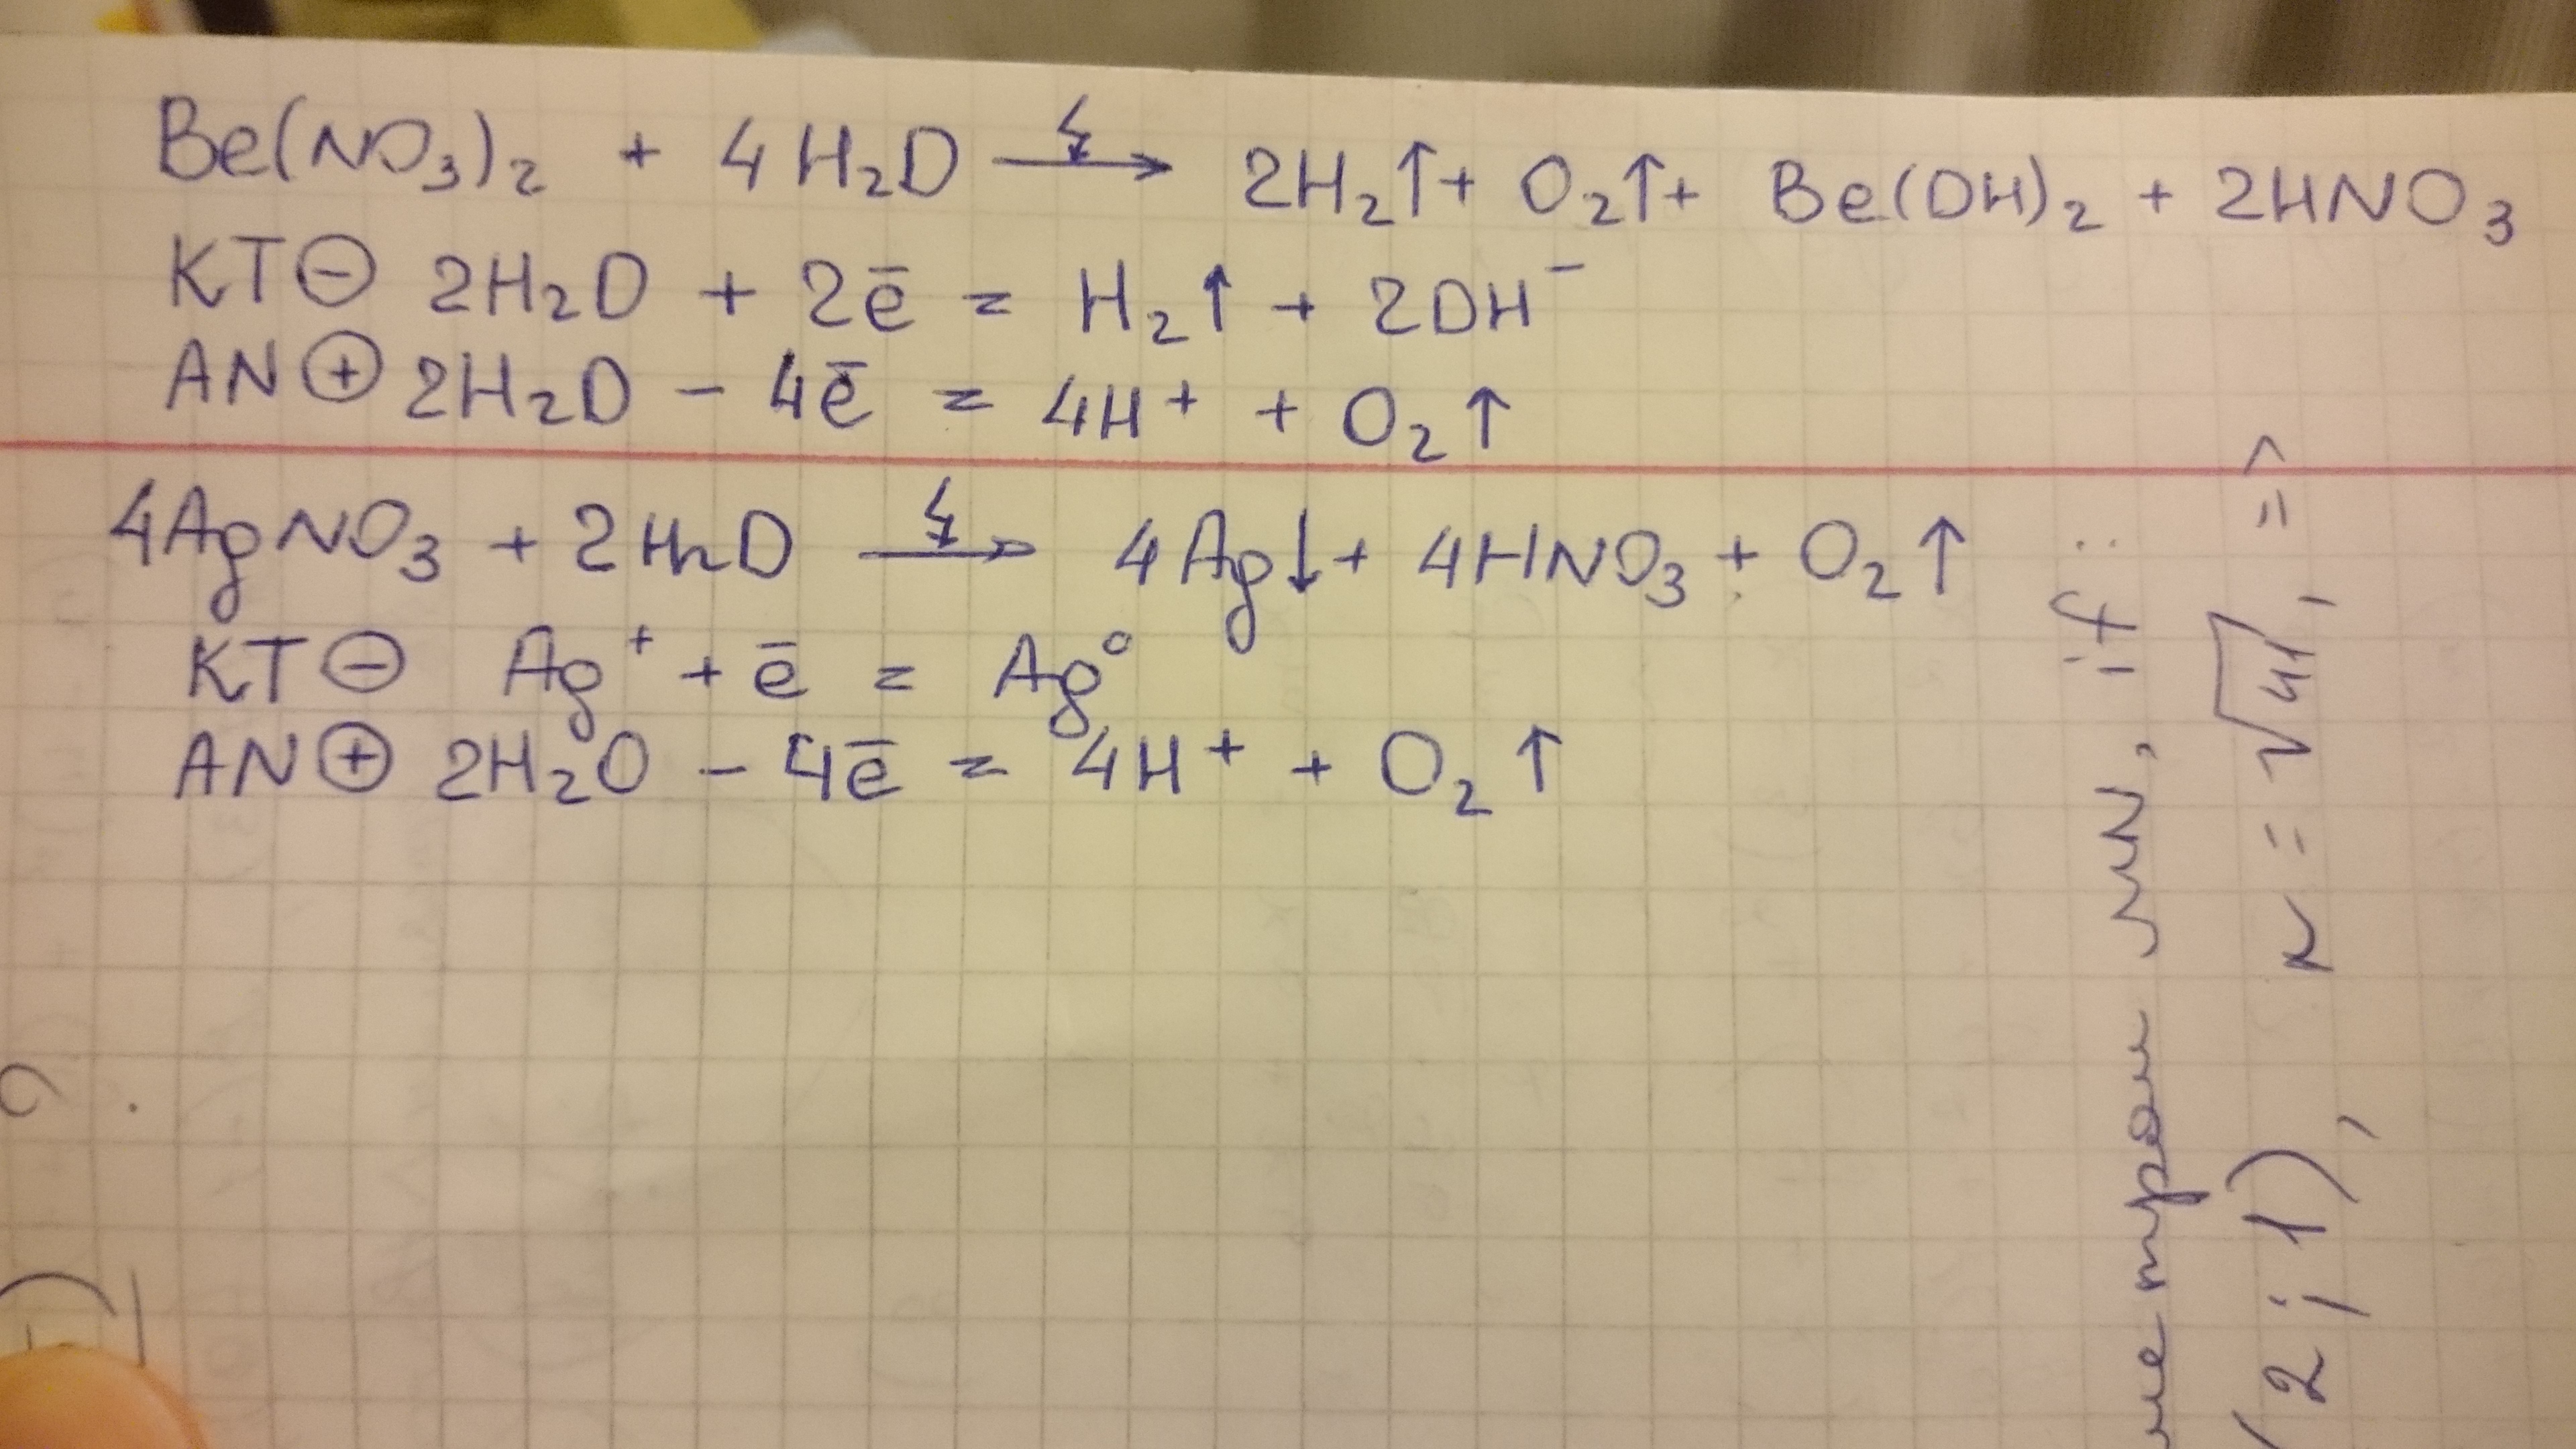 Be(NO₃)₂ + 4H₂O ⚡→ 2H₂↑ + O₂↑ + Be(OH)₂ + 2HNO₃
KT⊖ 2H₂O + 2ē = H₂↑ + 2OH⁻
AN⊕ 2H₂O − 4ē = 4H⁺ + O₂↑
4AgNO₃ + 2H₂O ⚡→ 4Ag↓ + 4HNO₃ + O₂↑
KT⊖ Ag⁺ + ē = Ag⁰
AN⊕ 2H₂O − 4ē = 4H⁺ + O₂↑
MN, if:
(2; 1), r = √41, =>